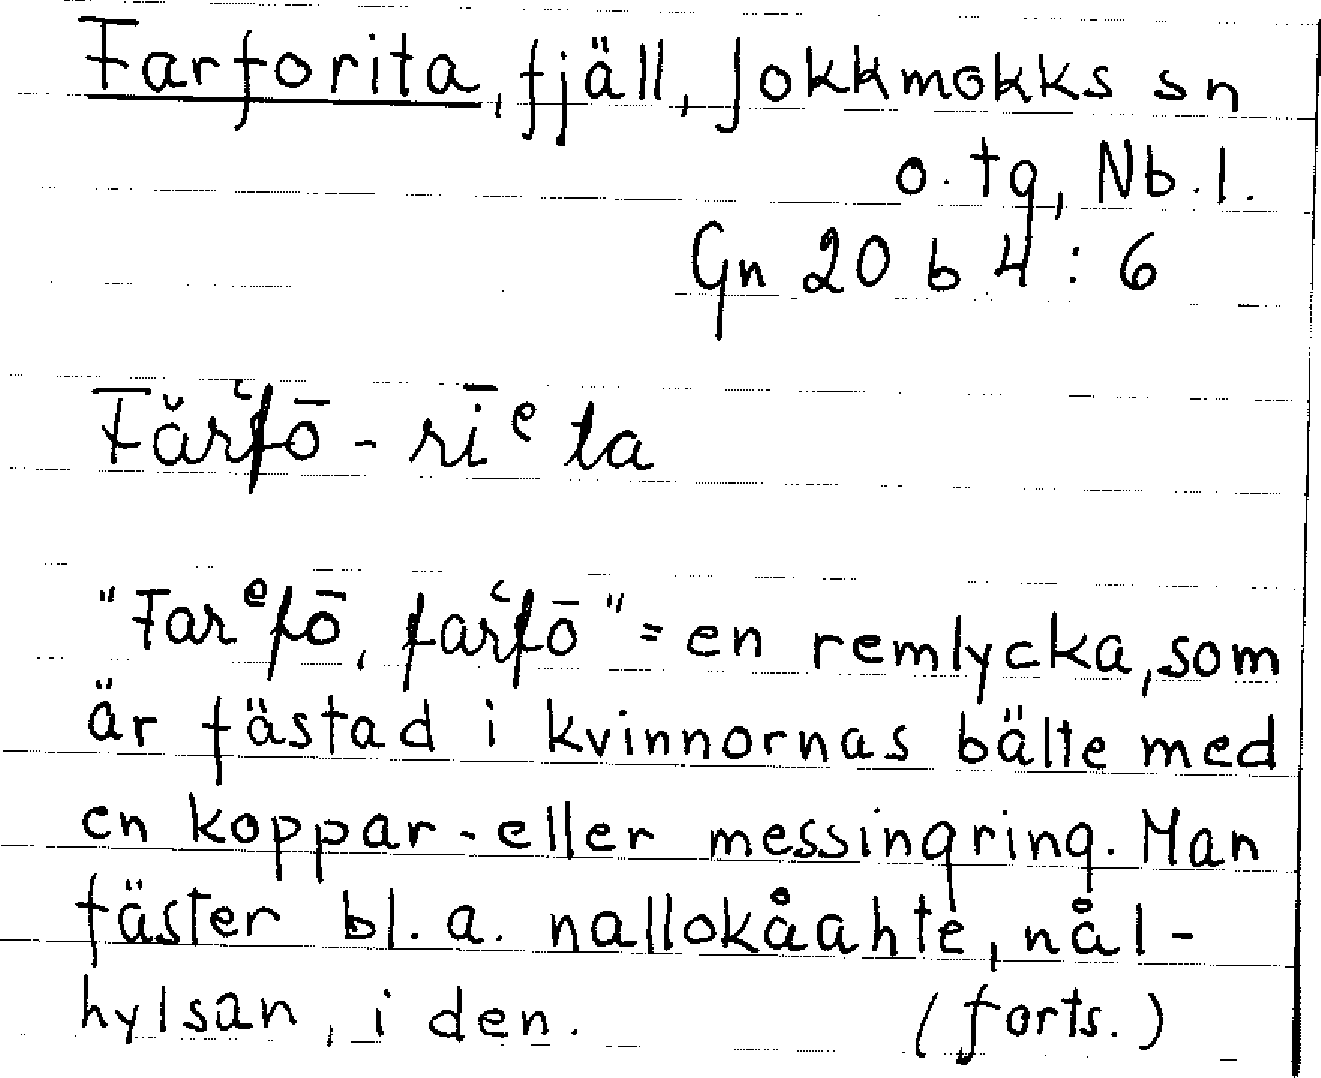 Farforita, fjäll, Jokkmokks sn
o. tg, Nb. l.
Gn 20 b 4 : 6
Fărʿfō - rīᵉ ta
"Farᵉfō, farʿfō" = en remlycka, som
är fästad i kvinnornas bälte med
en koppar- eller messingring. Man
fäster bl. a. nallokåahte, nål-
hylsan, i den. (forts.)